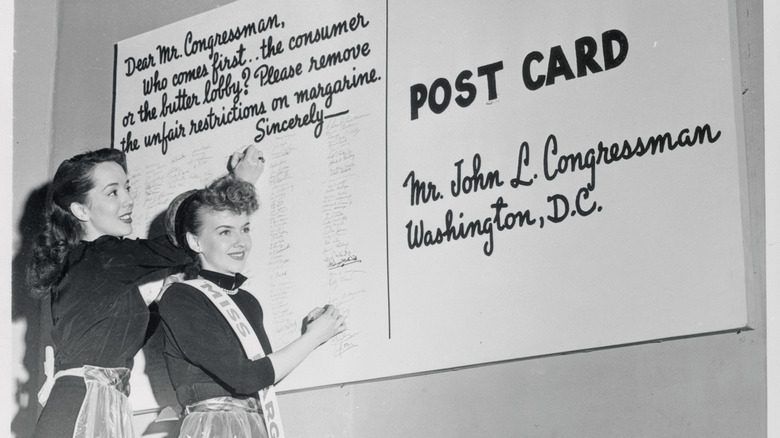 Dear Mr. Congressman,
Who comes first.. the consumer
or the butter lobby? Please remove
the unfair restrictions on margarine.
Sincerely—
POST CARD
Mr. John L. Congressman
Washington, D.C.
MISS